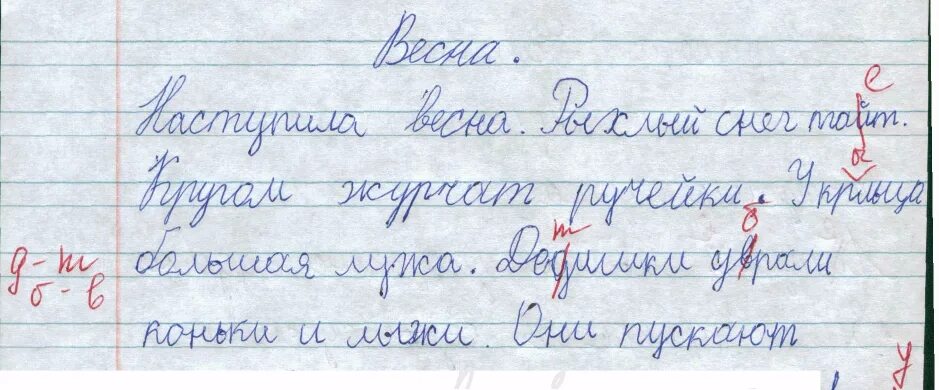 Весна.
е
Наступила весна. Рыхлый снег тайт.
о
Кругом журчат ручейки. У крльца
т б
д - т большая лужа. Дедишки уврали
б - в
коньки и лыжи. Они пускают
у